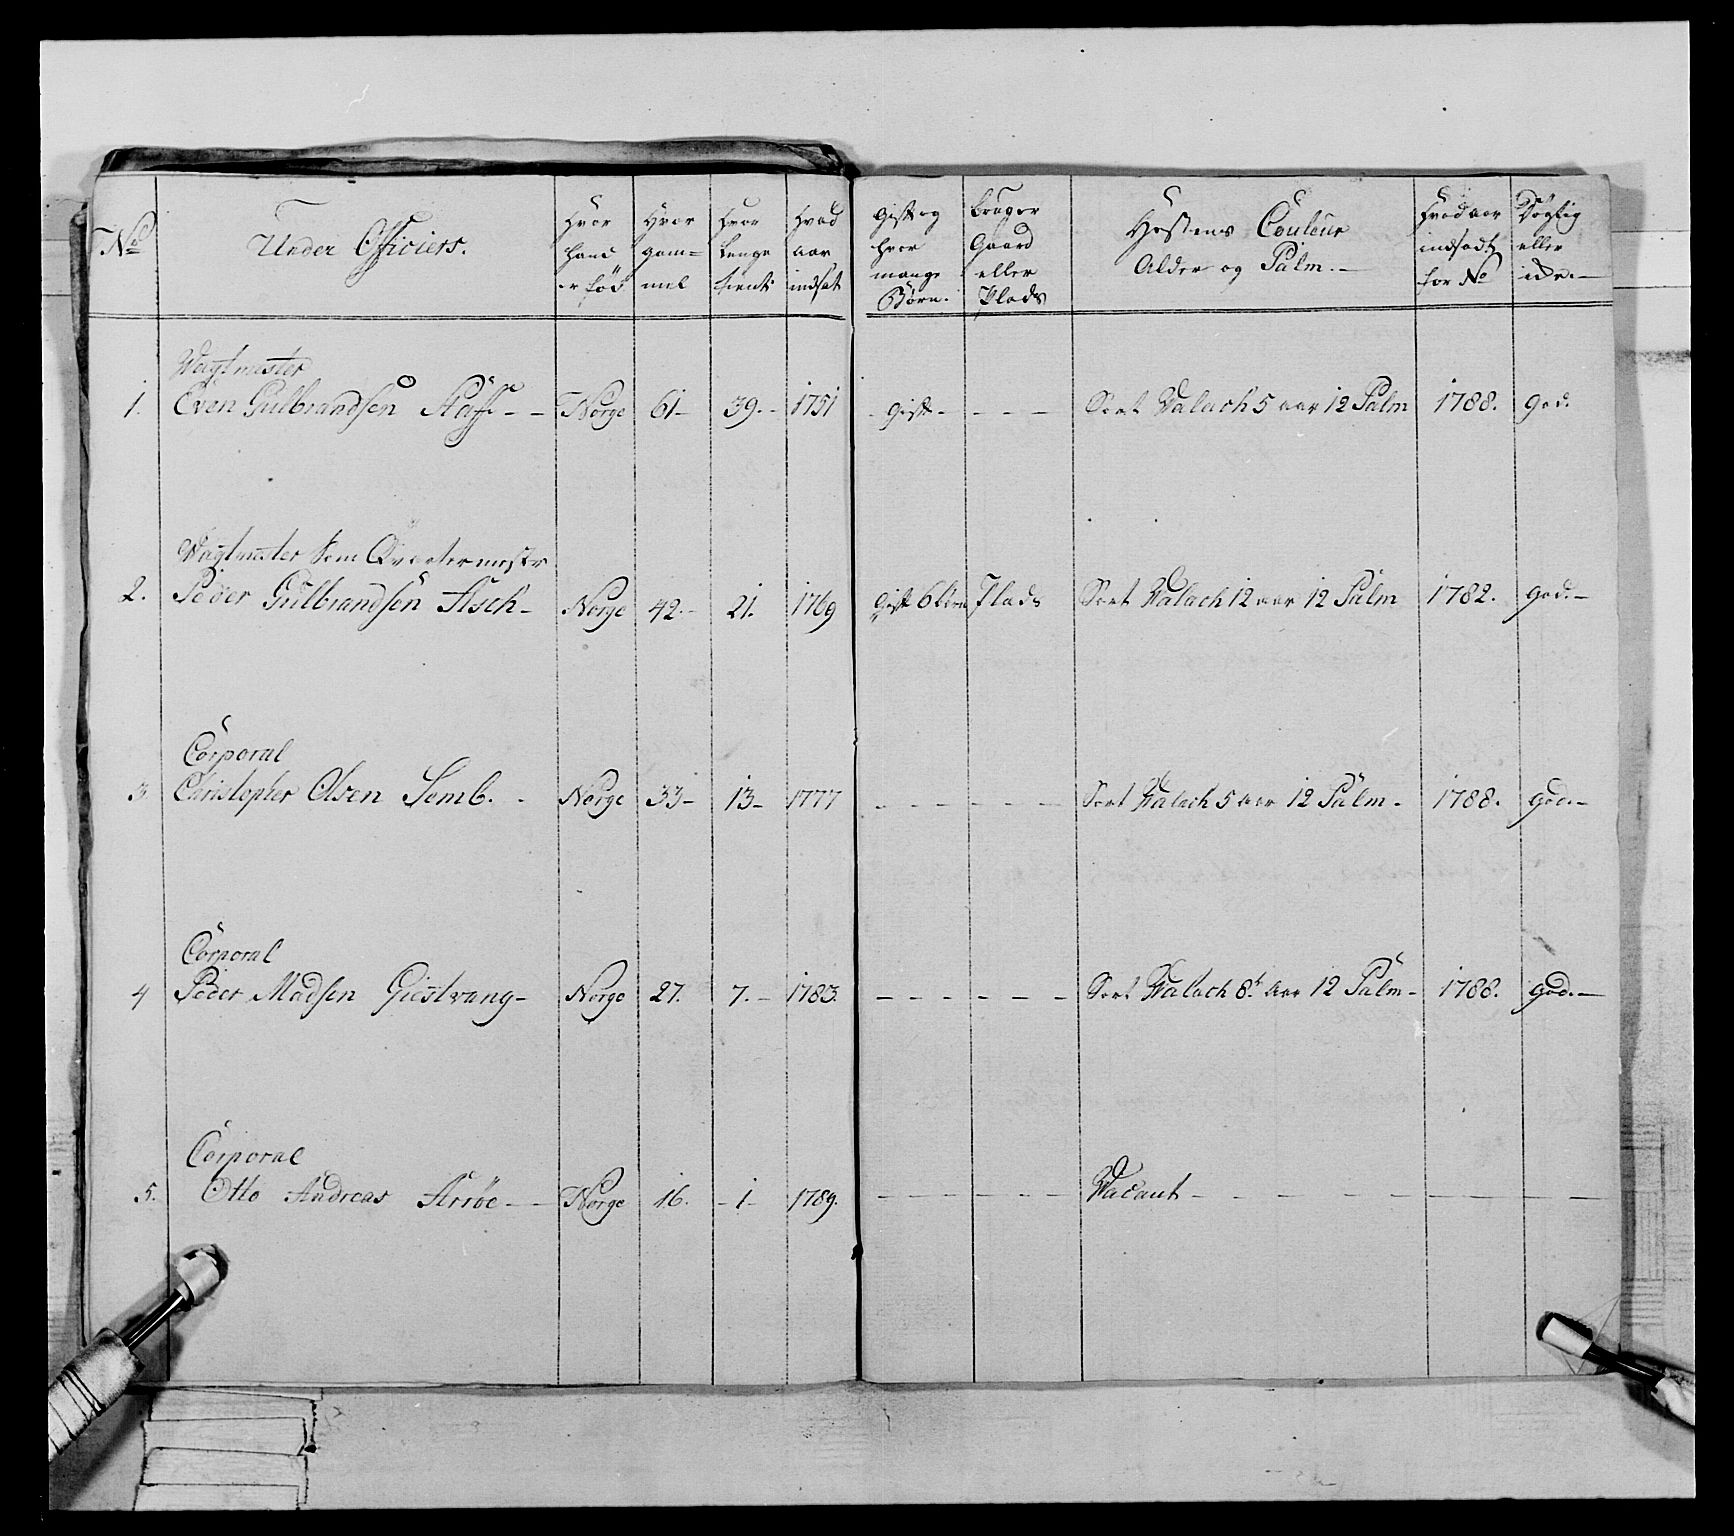 No
Under Officiers.
Hvor
hand
er föd
Hvor
gam=
mel
Hvor
lenge
tient
Hvad
aar
indsat
Gift og
hvor
mange
Börn.
bruger
Gaard
eller
Plads
Hestens Couleur
Alder og Palm. -
Hvad aar
indsadt
for No
Dögtig
eller
icke. -
Wagtmester
1. Even Gulbrandsen - - Norge 61- 39. - 1751 - Gift - - - - Sort Valach 5 aar 12 Palm 1788. god.
Wagtmester som Qvartermester
2. Peder Gulbrandsen Asch - Norge 42. - 21. 1769 Gift 6 börn Plads Sort Valach 12 aar 12 Palm 1782. god. -
Corporal
3 Christopher Olsen Semb. - Norge 33- 13- 1777 - - - - - - Sort Valach 5 aar 12 Palm - 1788. god. -
Corporal
4 Peder Madsen Giestvang - Norge 27. 7. - 1783. - - - - - - Sort Valach 8t aar 12 Palm - 1788. god. -
Corporal
5. Otto Andreas Arröe - - Norge 16. - 1 - 1789. - - - - - - Vacant - - - - - - - - -